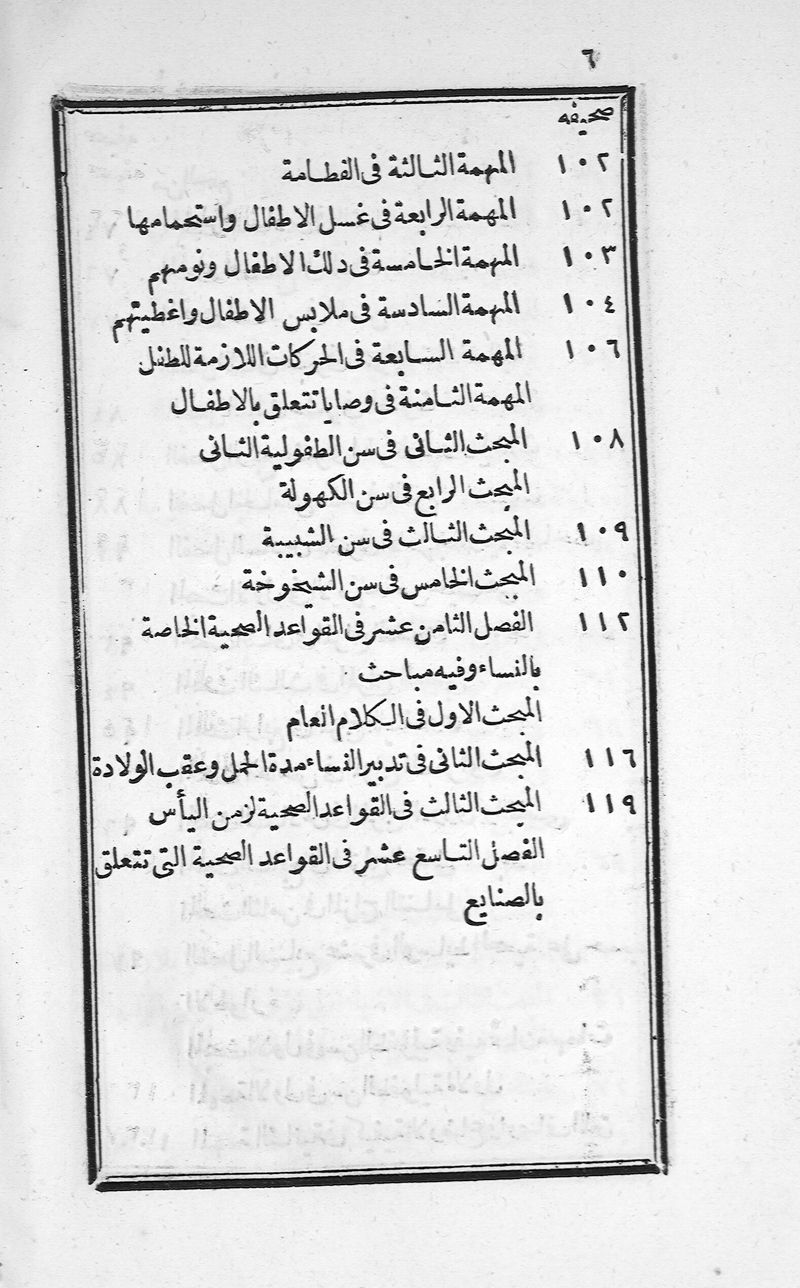 ٦
صحيفه
١٠٢ المهمة الثالثة فى الفطامة
١٠٢ المهمة الرابعة فى غسل الاطفال واستحمامها
١٠٣ المهمة الخامسة فى دلك الاطفال ونومهم
١٠٤ المهمة السادسة فى ملابس الاطفال واغطيتهم
١٠٦ المهمة السابعة فى الحركات اللازمة للطفل
المهمة الثامنة فى وصايا تتعلق بالاطفال
١٠٨ المبحث الثانى فى سن الطفولية الثانى
المبحث الرابع فى سن الكهولة
١٠٩ المبحث الثالث فى سن الشبيبة
١١٠ المبحث الخامس فى سن الشيخوخة
١١٢ الفصل الثامن عشر فى القواعد الصحية الخاصة
بالنساء وفيه مباحث
المبحث الاول فى الكلام العام
١١٦ المبحث الثانى فى تدبير النساء مدة الحمل وعقب الولادة
١١٩ المبحث الثالث فى القواعد الصحية لزمن اليأس
الفصل التاسع عشر فى القواعد الصحية التى تتعلق
بالصنايع